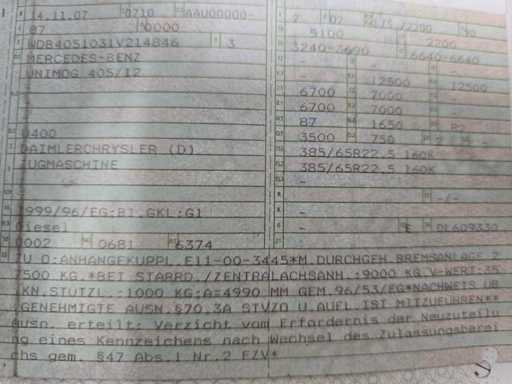 14.11.07 0710 AAU00000- 2 02 /2200 90
87 0000 5100 2200
WDB4051031V214846 3 3240-3690 6640-6640
MERCEDES-BENZ - - -
UNIMOG 405/12 - 12500 12500
6700 7000 -
- 6700 7000 -
- 87 1650 82
U400 3500 750 2
DAIMLERCHRYSLER (D) 385/65R22.5 160K
ZUGMASCHINE 385/65R22.5 160K
- -
- - -/-
1999/96/EG;B1,GKL:G1 -
Diesel - E DL609330
0002 0681 6374
ZU D:ANHANGEKUPPL.E11-00-3445*M.DURCHGEH.BREMSANLAGE 2
7500 KG.*BEI STARRD./ZENTRALACHSANH.:9000 KG,V-WERT:35
KN,STUTZL.:1000 KG;A=4990 MM GEM.96/53/EG*NACHWEIS UB
.GENEHMIGTE AUSN.§70.3A STVZO U.AUFL.IST MITZUFUHREN**
Ausn. erteilt: Verzicht vom Erfordernis der Neuzuteilu
ng eines Kennzeichens nach Wechsel des Zulassungsberei
chs gem. §47 Abs.1 Nr.2 FZV*